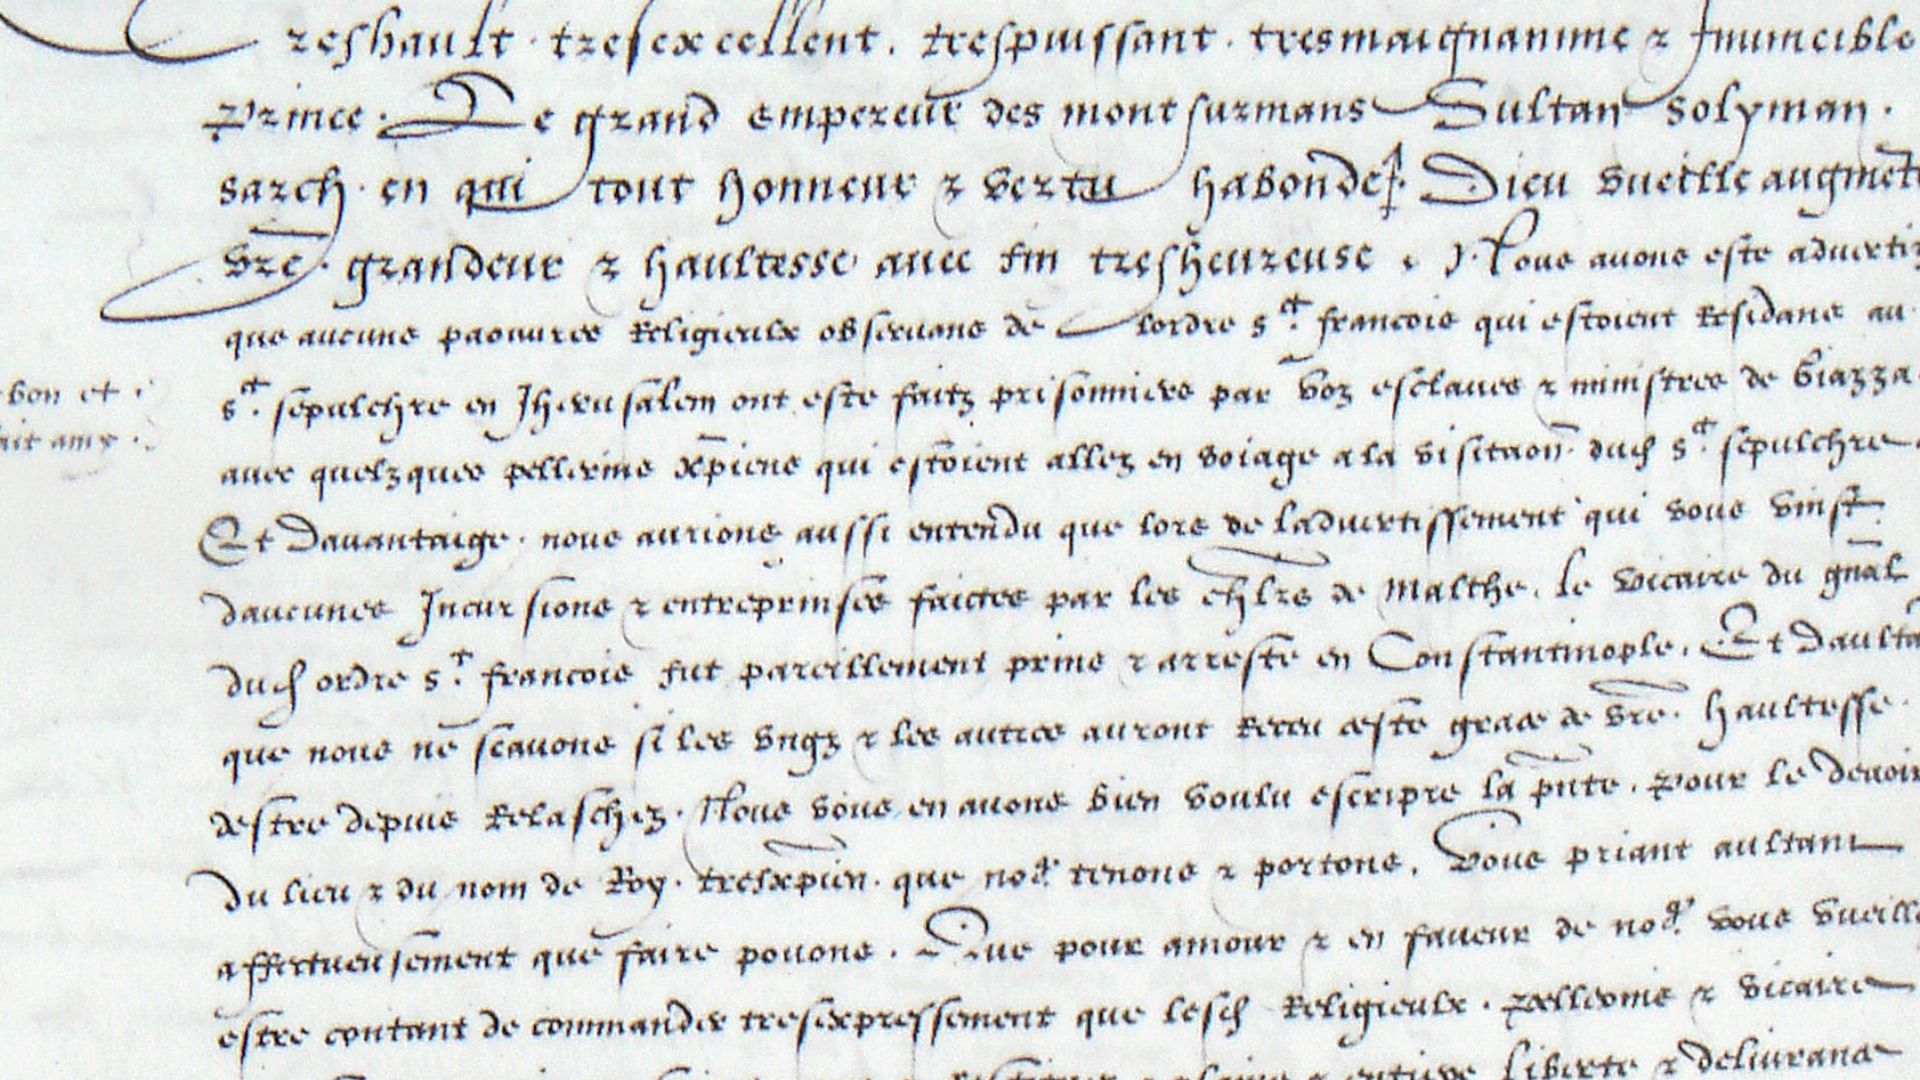 Treshault. tresexcellent. trespuissant. tresmaignanime & Inuincible
Prince. Le grand empereur des montsurmans Sultan Solyman.
sarch. en qui tout honneur & vertu habonde. Dieu vueille augmēt
vrē. grandeur & haultesse auec fin tresheureuse. Nous auons este aduertiz
que aucuns paouures Religieulx obseruans de lordre st. francois qui estoient Residans au
st. sepulchre en Jherusalem ont este faitz prisonniers par voz esclaues & ministres de Giazza
bon et
ait amy.
auec quelzques pellerins xp̄iens qui estoient allez en voiage a la visitaōn. dud st. sepulchre
Et Dauantaige. nous aurions aussi entendu que lors de laduertissement qui vous vinst
daucunes Incursions & entreprinses faictes par les chlrs̄ de Malthe. le vicaire du gn̄al
dud ordre st. francois fut pareillement prins & arreste en Constantinople. Et Daulta
que nous ne scauons si les vngz & les autres auront Receu ceste grace de vrē. haultesse.
destre depuis Relaschez. Nous vous en auons bien voulu escripre la pn̄te. Pour le deuoir
Du lieu & du nom de Roy. tresxp̄ien. que no9. tenons & portons. Vous priant aultant
affectueusement que faire pouons. Que pour amour & en faueur de no9. vous vueille
estre contant de commander tresexpressement que lesd Religieulx. Pellerins & vicaire
entiere liberte & deliurance